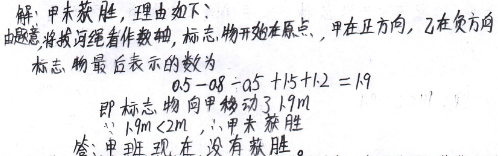 解：甲未获胜，理由如下：
由题意,将拔河绳看作数轴，标志物开始在原点，甲在正方向，乙在负方向
标志物最后表示的数为
0.5-0.8-0.5+1.5+1.2=1.9
即标志物向甲移动了1.9m
∵1.9m<2m，∴甲未获胜
答：甲班现在没有获胜。